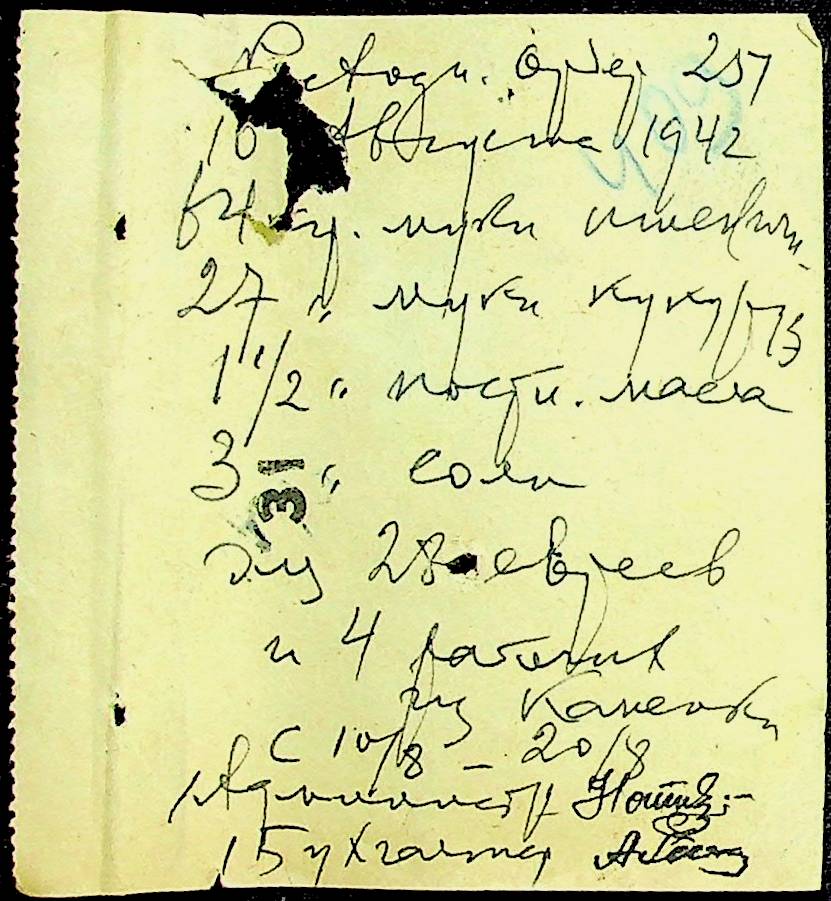 Расходн. ордер 257
10 Августа 1942
64 кг. муки пшеничн.
27 " муки кукуруз
1 1/2 " постн. масла
3 " соли
131
для 28 евреев
и 4 рабочих
из Каменки
с 10/8 – 20/8
Администр
Бухгалтер